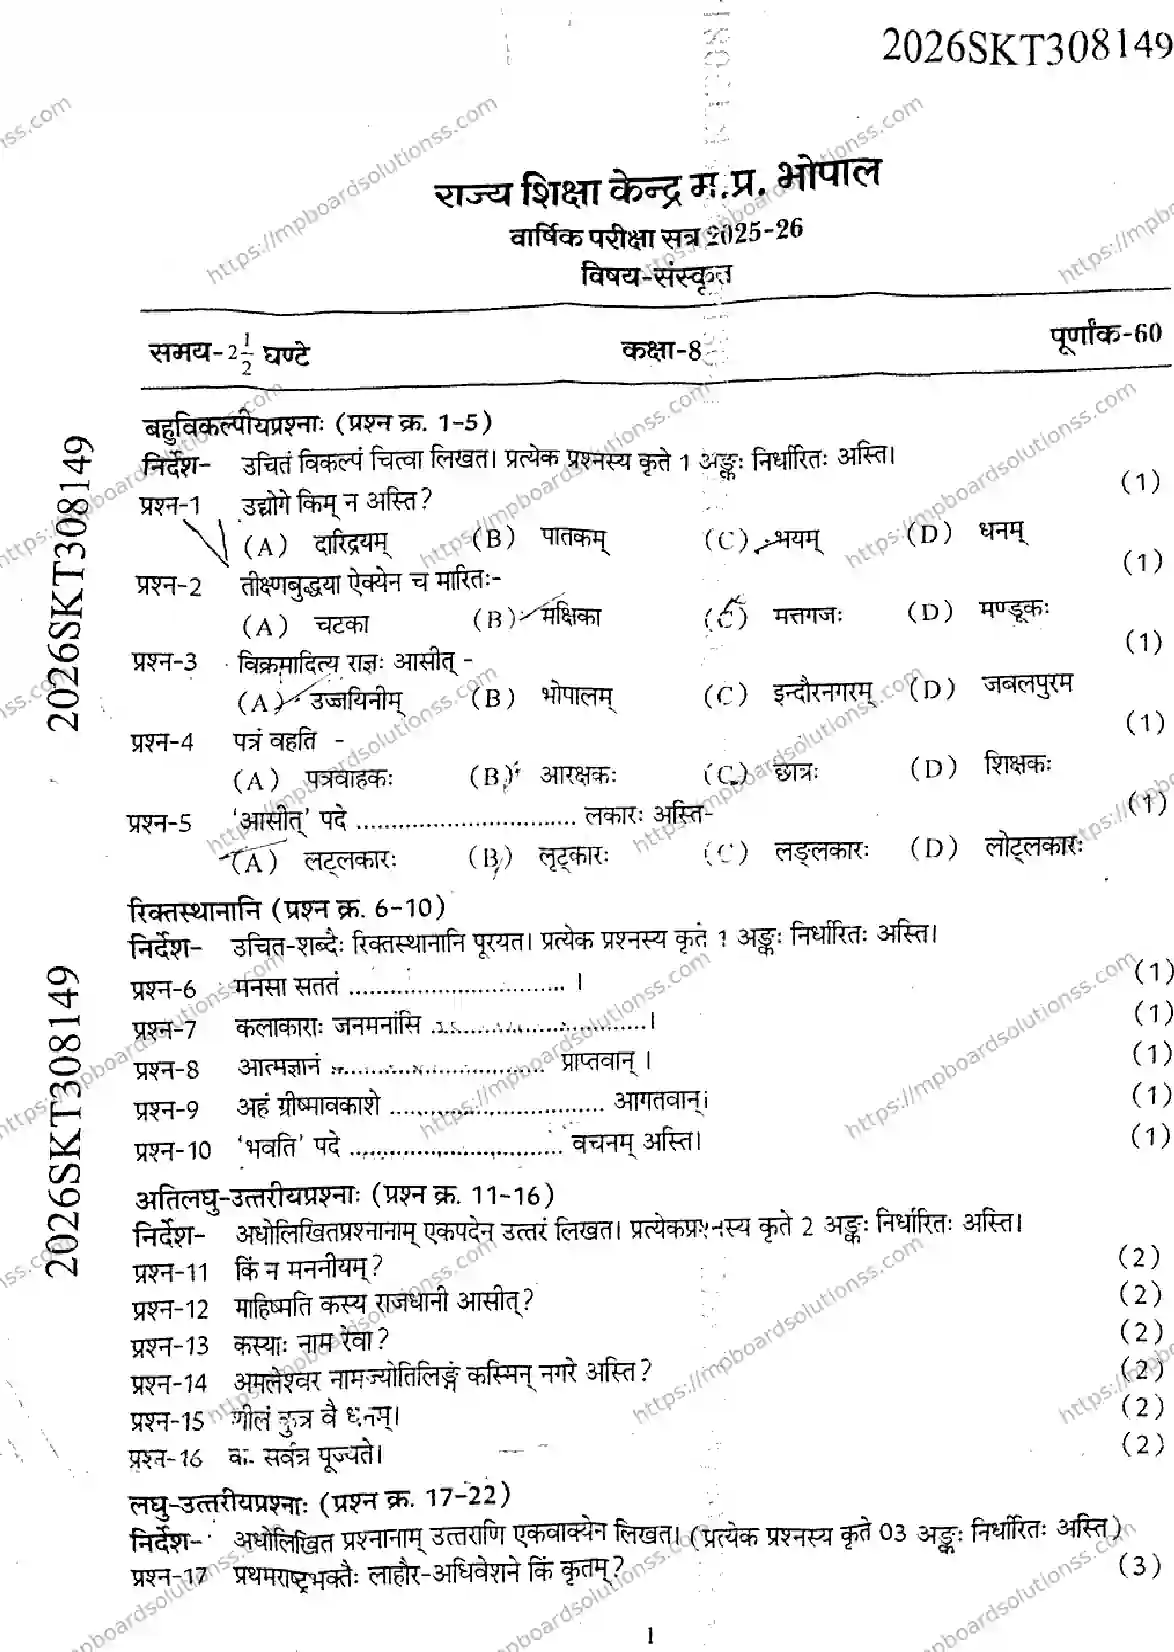 2026SKT308149
राज्य शिक्षा केन्द्र म.प्र. भोपाल
वार्षिक परीक्षा सत्र 2025-26
विषय-संस्कृत
समय-2 1/2 घण्टे कक्षा-8 पूर्णांक-60
बहुविकल्पीयप्रश्नाः (प्रश्न क्र. 1-5)
निर्देश- उचितं विकल्पं चित्वा लिखत। प्रत्येक प्रश्नस्य कृते 1 अङ्कः निर्धारितः अस्ति।
प्रश्न-1 उद्योगे किम् न अस्ति? (1)
(A) दारिद्रयम् (B) पातकम् (C) भयम् (D) धनम्
प्रश्न-2 तीक्ष्णबुद्धया ऐक्येन च मारितः- (1)
(A) चटका (B) मक्षिका (C) मत्तगजः (D) मण्डूकः
प्रश्न-3 विक्रमादित्य राज्ञः आसीत् - (1)
(A) उज्जयिनीम् (B) भोपालम् (C) इन्दौरनगरम् (D) जबलपुरम
प्रश्न-4 पत्रं वहति - (1)
(A) पत्रवाहकः (B) आरक्षकः (C) छात्रः (D) शिक्षकः
प्रश्न-5 'आसीत्' पदे ................................ लकारः अस्ति- (1)
(A) लट्लकारः (B) लृट्कारः (C) लङ्लकारः (D) लोट्लकारः
रिक्तस्थानानि (प्रश्न क्र. 6-10)
निर्देश- उचित-शब्दैः रिक्तस्थानानि पूरयत। प्रत्येक प्रश्नस्य कृते 1 अङ्कः निर्धारितः अस्ति।
प्रश्न-6 मनसा सततं ................................ । (1)
प्रश्न-7 कलाकाराः जनमनांसि ................................। (1)
प्रश्न-8 आत्मज्ञानं ................................ प्राप्तवान् । (1)
प्रश्न-9 अहं ग्रीष्मावकाशे ................................ आगतवान्। (1)
प्रश्न-10 'भवति' पदे ................................ वचनम् अस्ति। (1)
अतिलघु-उत्तरीयप्रश्नाः (प्रश्न क्र. 11-16)
निर्देश- अधोलिखितप्रश्नानाम् एकपदेन उत्तरं लिखत। प्रत्येकप्रश्नस्य कृते 2 अङ्कः निर्धारितः अस्ति।
प्रश्न-11 किं न मननीयम्? (2)
प्रश्न-12 माहिष्मति कस्य राजधानी आसीत्? (2)
प्रश्न-13 कस्याः नाम रेवा? (2)
प्रश्न-14 अमलेश्वर नामज्योतिलिङ्गं कस्मिन् नगरे अस्ति? (2)
प्रश्न-15 शीलं कुत्र वै धनम्। (2)
प्रश्न-16 कः सर्वत्र पूज्यते। (2)
लघु-उत्तरीयप्रश्नाः (प्रश्न क्र. 17-22)
निर्देश- अधोलिखित प्रश्नानाम् उत्तराणि एकवाक्येन लिखत। (प्रत्येक प्रश्नस्य कृते 03 अङ्कः निर्धारितः अस्ति)
प्रश्न-17 प्रथमराष्ट्रभक्तैः लाहौर-अधिवेशने किं कृतम्? (3)
1
2026SKT308149
2026SKT308149
https://mpboardsolutionss.com